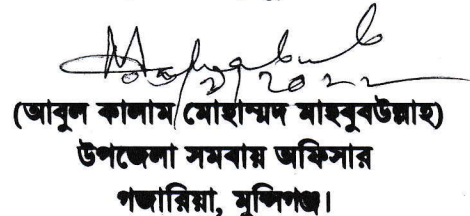 (আবুল কালাম মোহাম্মদ মাহবুবউল্লাহ)
উপজেলা সমবায় অফিসার
গজারিয়া, মুন্সিগঞ্জ।